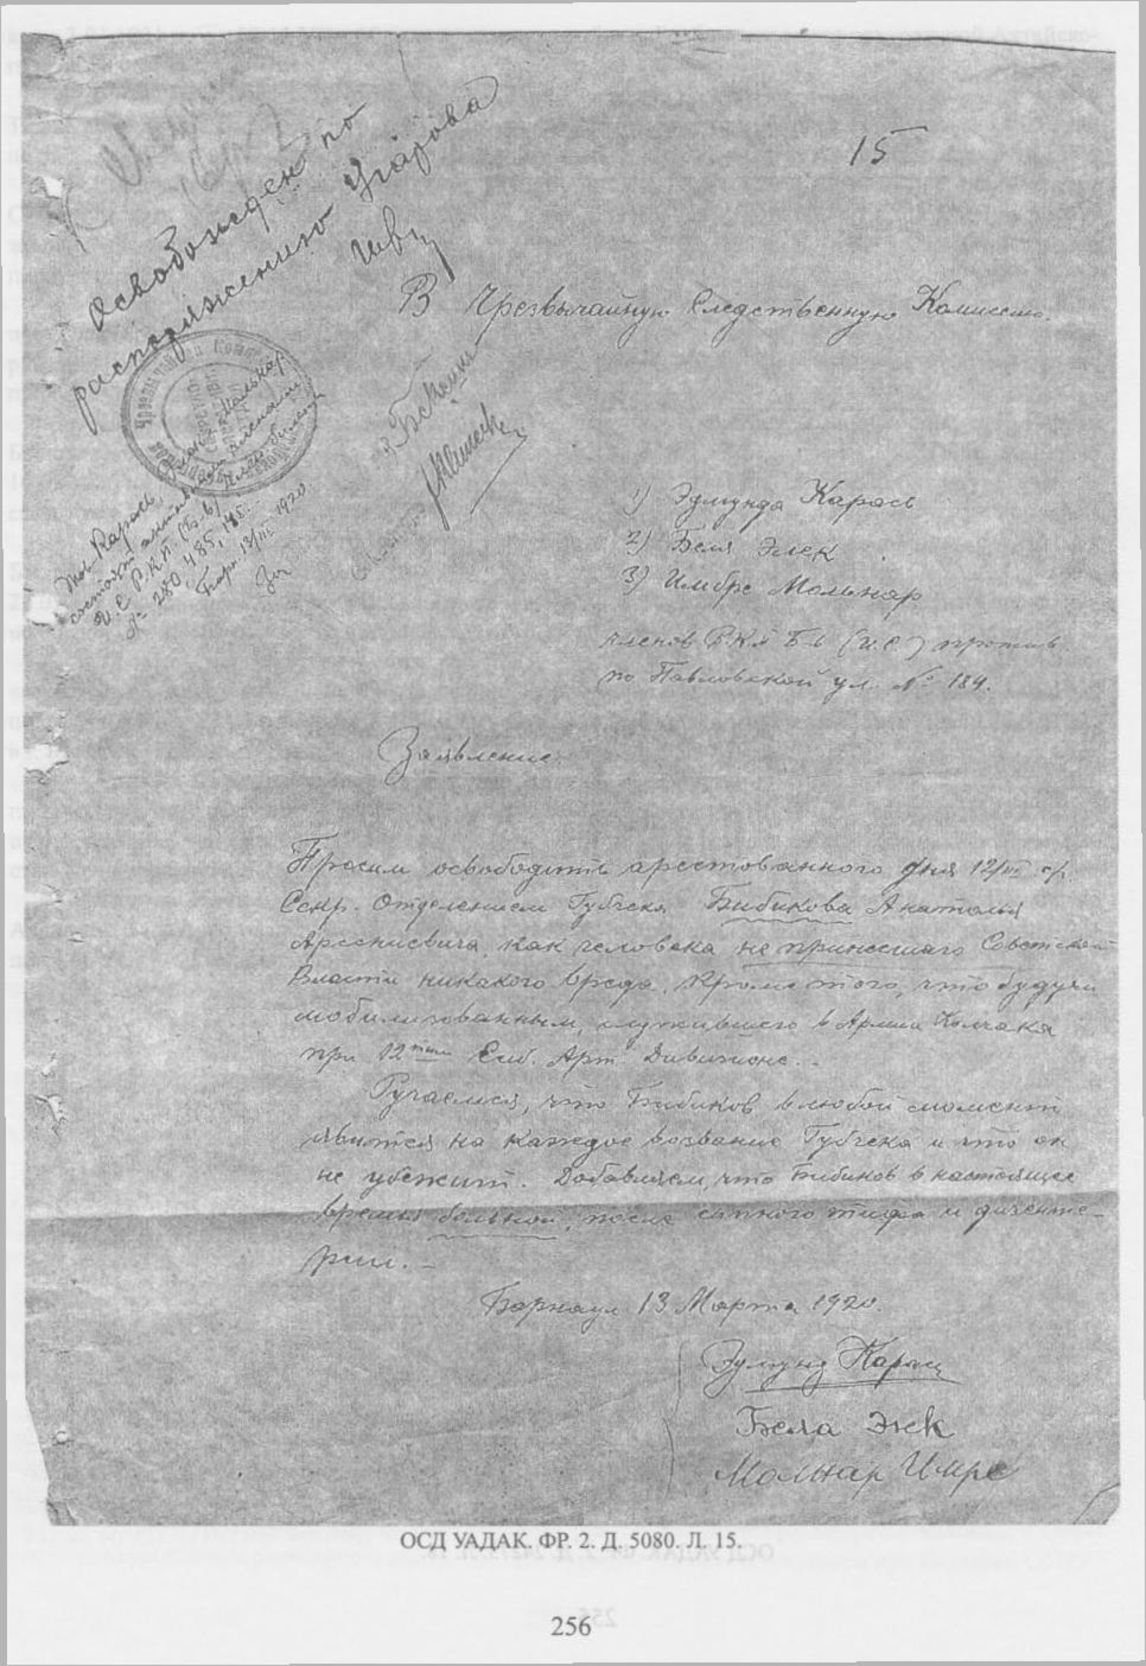 15
Освобожден по
распоряжению Угарова
В Чрезвычайную Следственную Комиссию.
Тов. Карось,
состоят
И.С. Р.К.П. (б-в)
№ 280, 485,
Барн. 13/III 1920
1) Эдмунда Карось
2) Бела Элек
3) Имбре Мольнар
членов Р.К.П. Б-в (И.С.) прожив.
по Павловской ул. № 184.
Заявление.
Просим освободить арестованного дня 12/III с/г.
Секр. Отделением Губчека Бибикова Анатолия
Арсениевича, как человека не принесшаго Советской
Власти никакого вреда, кроме того, что будучи
мобилизованным, служившего в Армии Колчака
при 12тим Сиб. Арт. Дивизионе.
Ручаемся, что Бибиков в любой момент
явится на каждое возвание Губчека и что он
не убежит. Добавляем, что Бибиков в настоящее
время больной, после сыпного тифа и дизенте-
рии. –
Барнаул 13 Марта 1920.
Эдмунд Карось
Бела Элек
Молнар Имре
ОСД УАДАК. ФР. 2. Д. 5080. Л. 15.
256